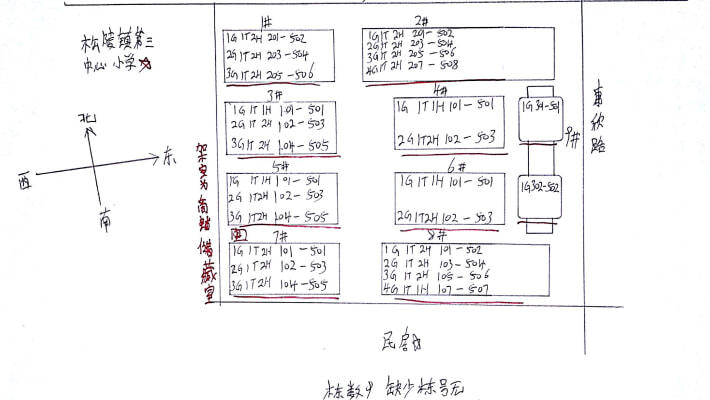 松陵镇第三
中心小学
北
西
东
南
架空为商铺储藏室
1#
1G 1T 2H 201-502
2G 1T 2H 203-504
3G 1T 2H 205-506
2#
1G 1T 2H 201-502
2G 1T 2H 203-504
3G 1T 2H 205-506
4G 1T 2H 207-508
3#
1G 1T 1H 101-501
2G 1T 2H 102-503
3G 1T 2H 104-505
4#
1G 1T 1H 101-501
2G 1T 2H 102-503
5#
1G 1T 1H 101-501
2G 1T 2H 102-503
3G 1T 2H 104-505
6#
1G 1T 1H 101-501
2G 1T 2H 102-503
7#
1G 1T 2H 101-501
2G 1T 2H 102-503
3G 1T 2H 104-505
8#
1G 1T 2H 101-502
2G 1T 2H 103-504
3G 1T 2H 105-506
4G 1T 1H 107-507
9#
1G 302-502
路
民宅
栋数9 缺少栋号无